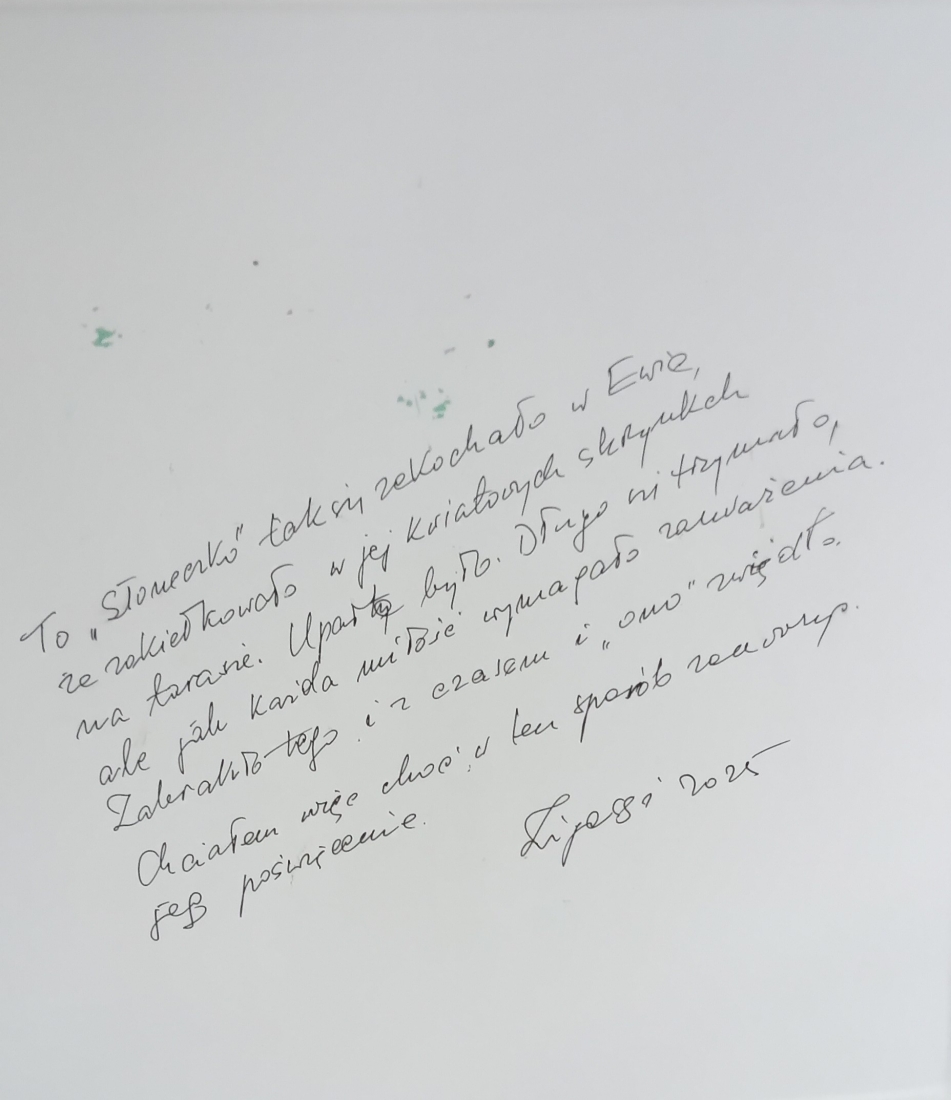 To „Słoneczko" tak się zakochało w Ewie,
że zakiełkowało w jej kwiatowych skrzynkach
na tarasie. Uparte było. Długo się trzymało,
ale jak każda miłość wymagało zauważenia.
Zabrakło tego i z czasem i „ono" zwiędło.
Chciałem więc choć w ten sposób
jego poświęcenie.
2025